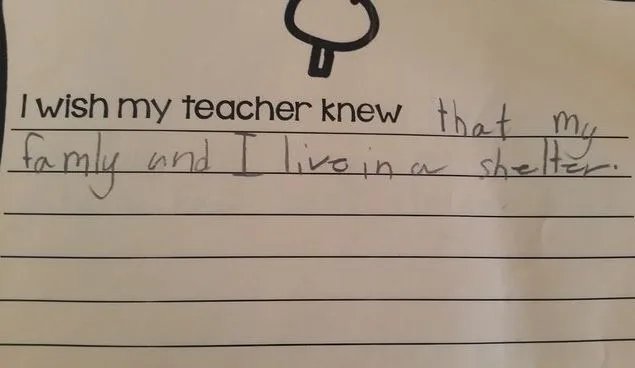 I wish my teacher knew that my
famly and I live in a shelter.